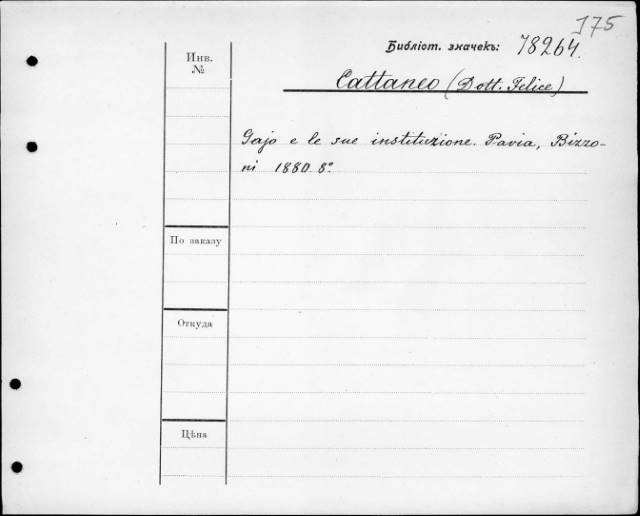 175
Библіот. значекъ: 78264.
Инв.
№
Cattaneo (Dott. Felice)
Gajo e le sue instituzione. Pavia, Bizzo-
ni 1880. 8°.
По заказу
Откуда
Цѣна